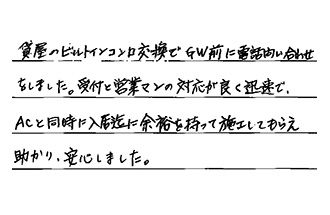 貸屋のビルトインコンロ交換でGW前に電話問い合わせ
をしました。受付と営業マンの対応が良く迅速で、
ACと同時に入居迄に余裕を持って施工してもらえ
助かり、安心しました。